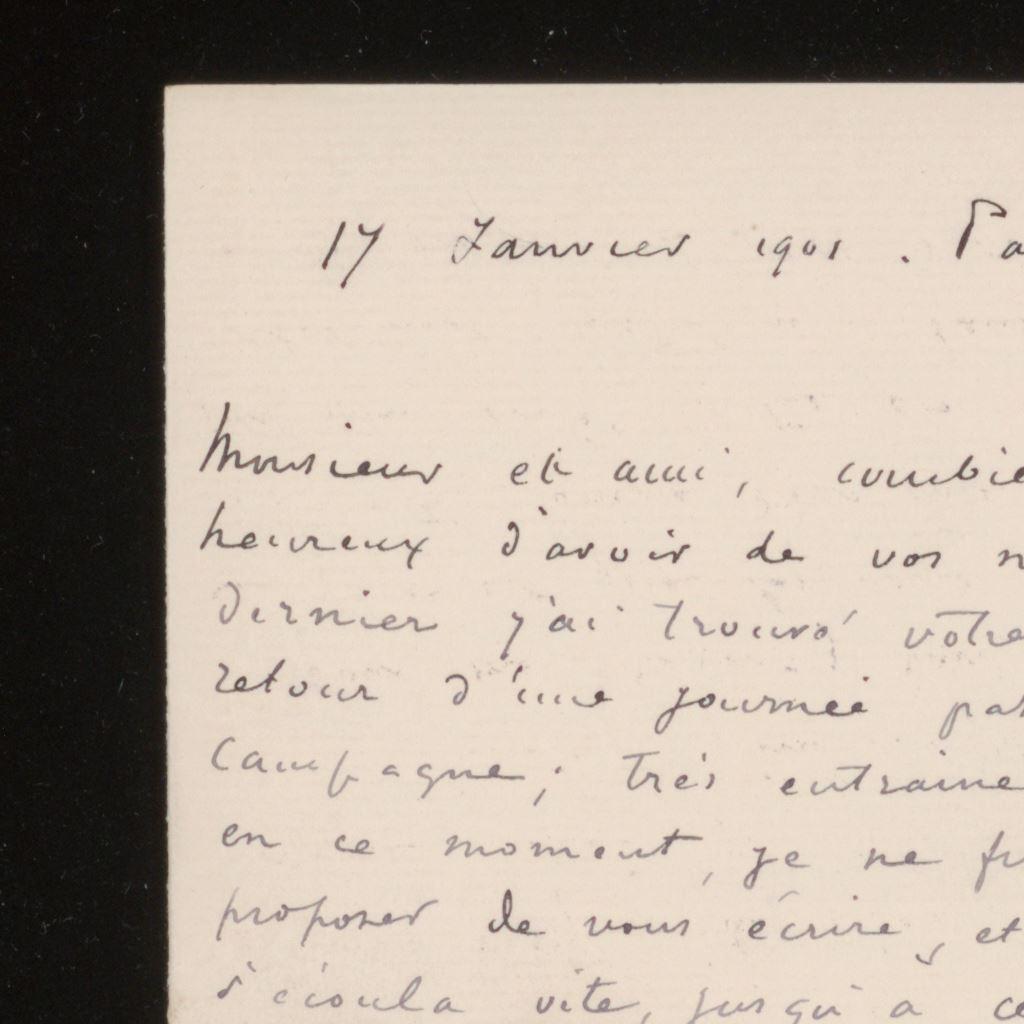 17 Janvier 1901. Pa
Monsieur et ami, combie
heureux d'avoir de vos n
dernier j'ai trouvé votre
retour d'une journée pas
campagne; très entraine
en ce moment, je ne fu
proposer de vous écrire, et
s'écoula vite, jusqu'à ce